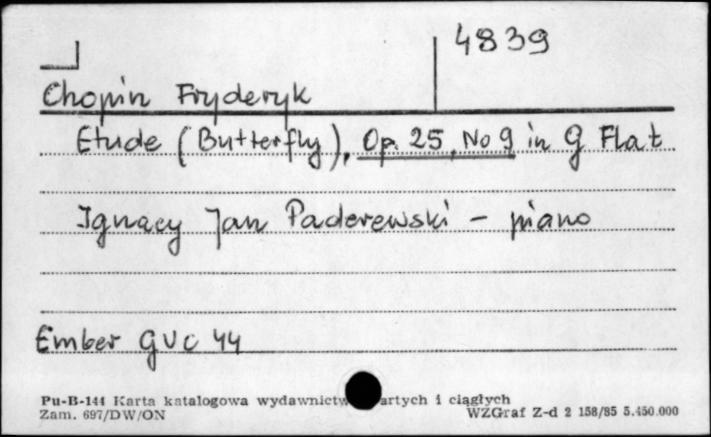 4839
Chopin Fryderyk
Etude (Butterfly), Op. 25, No 9 in G Flat
Ignacy Jan Paderewski – piano
Ember GVC 44
Pu-B-144 Karta katalogowa wydawnictw artych i ciągłych
Zam. 697/DW/ON
WZGraf Z-d 2 158/85 5.450.000